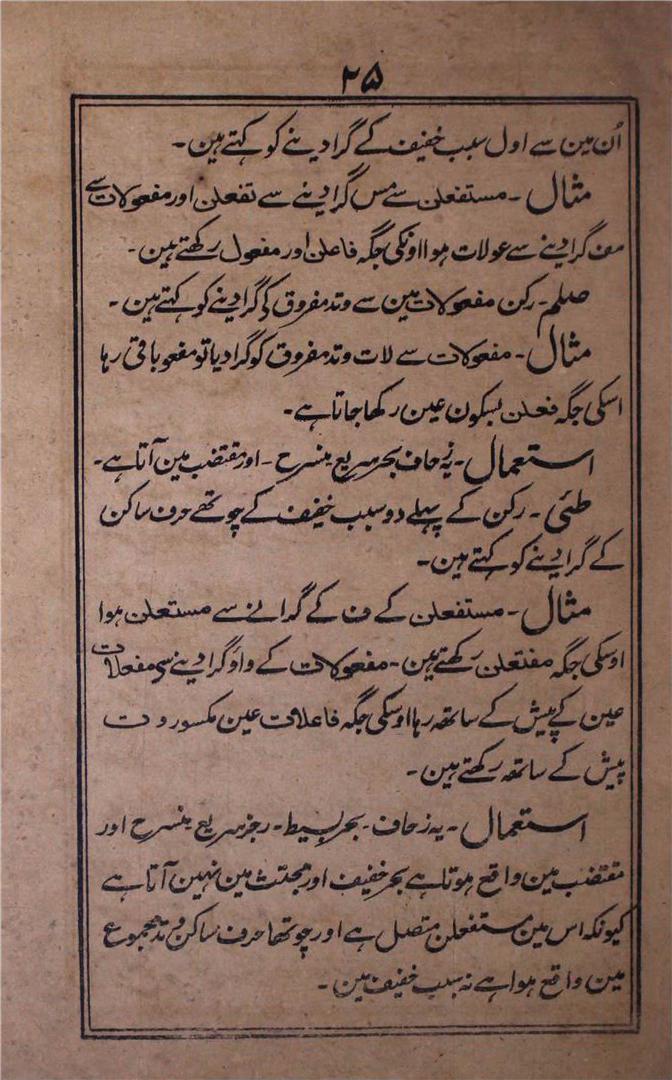 ۲۵
اُن مین سے اول سبب خفیف کے گرادینے کو کہتے ہین۔
مثال۔ مستفعلن سے مس گرادینے سے تفعلن اور مفعولات سے
مف گرادینے سے عولات ہوا اونکی جگہ فاعلن اور مفعول رکھتے ہین۔
صلم۔ رکن مفعولات مین سے وتد مفروق کی گرادینے کو کہتے ہین۔
مثال۔ مفعولات سے لات وتد مفروق کو گرادیا تو مفعو باقی رہا
اسکی جگہ فعلن بسکون عین رکھا جاتا ہے۔
استعمال۔ یہ زحاف بحر سریع منسرح۔ اور مقتضب مین آتا ہے۔
طئی۔ رکن کے پہلے دو سبب خفیف کے چوتھے حرف ساکن
کے گرادینے کو کہتے ہین۔
مثال۔ مستفعلن کے ف کے گرانے سے مستعلن ہوا
اوسکی جگہ مفتعلن رکھتے ہین۔ مفعولات کے واؤ گرادینے سی مفعلات
عین کے پیش کے ساتھ رہا اوسکی جگہ فاعلات عین مکسور و ت
پیش کے ساتھ رکھتے ہین۔
استعمال۔ یہ زحاف۔ بحر بسیط۔ رجز سریع منسرح اور
مقتضب مین واقع ہوتا ہے بحر خفیف اور مجتث مین نہین آتا ہے
کیونکہ اس مین مستفعلن متصل ہے اور چوتھا حرف ساکن وتد مجموع
مین واقع ہوا ہے نہ سبب خفیف مین۔